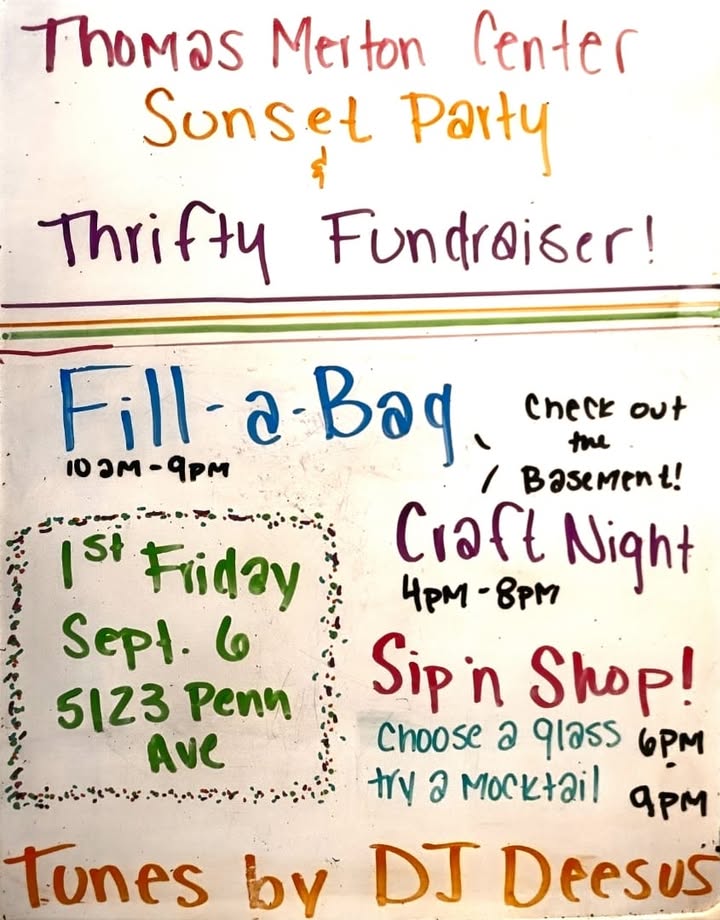 Thomas Merton Center
Sunset Party
&
Thrifty Fundraiser!
Fill-a-Bag
10am-9pm
Check out
the
Basement!
1st Friday
Sept. 6
5123 Penn
Ave
Craft Night
4pm-8pm
Sip'n Shop!
Choose a glass 6pm
try a mocktail 9pm
Tunes by DJ Deesus